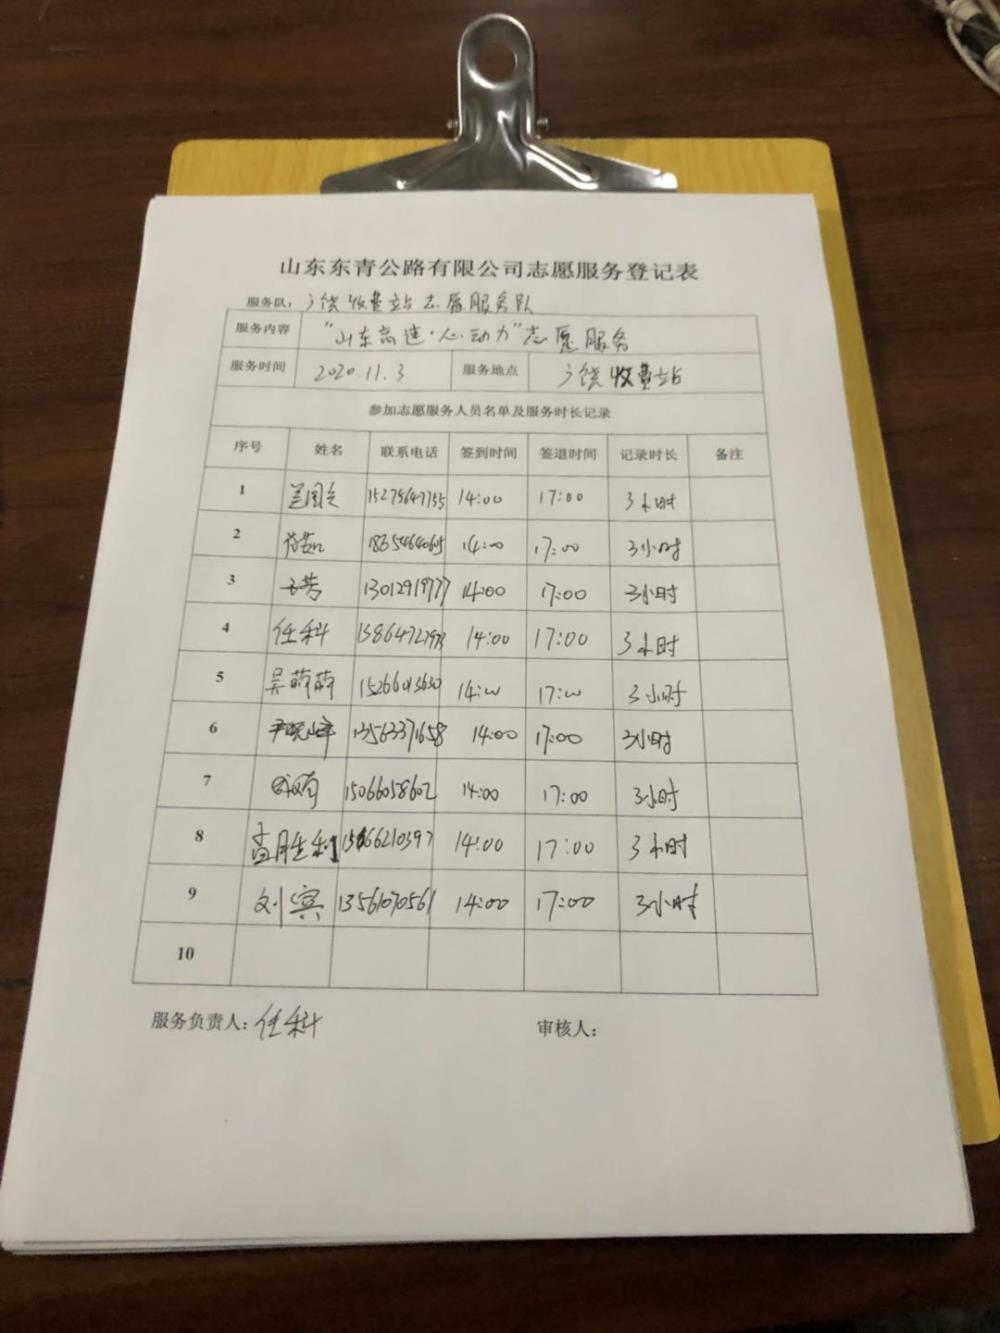 山东东青公路有限公司志愿服务登记表
服务队：广饶收费站志愿服务队
服务内容 "山东高速·心动力"志愿服务
服务时间 2020.11.3 服务地点 广饶收费站
参加志愿服务人员名单及服务时长记录
序号 姓名 联系电话 签到时间 签退时间 记录时长 备注
1 15275647755 14:00 17:00 3小时
2 18654640605 14:00 17:00 3小时
3 13012919777 14:00 17:00 3小时
4 任科 14:00 17:00 3小时
5 吴萌萌 15266013630 14:00 17:00 3小时
6 尹晓峰 13563371658 14:00 17:00 3小时
7 15066058602 14:00 17:00 3小时
8 孟胜利 15066210397 14:00 17:00 3小时
9 刘宾 13561070561 14:00 17:00 3小时
10
服务负责人：任科 审核人：